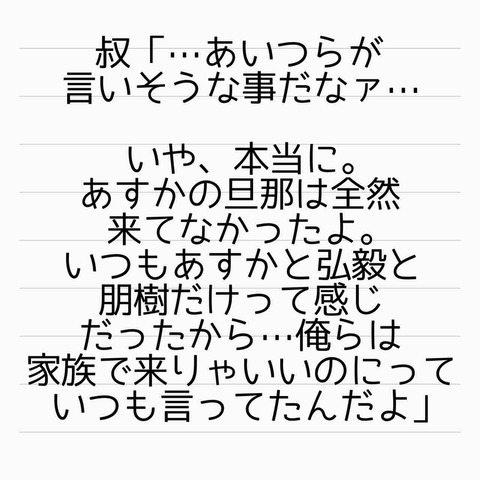 叔「…あいつらが
言いそうな事だなァ…
いや、本当に。
あすかの旦那は全然
来てなかったよ。
いつもあすかと弘毅と
朋樹だけって感じ
だったから…俺らは
家族で来りゃいいのにって
いつも言ってたんだよ」